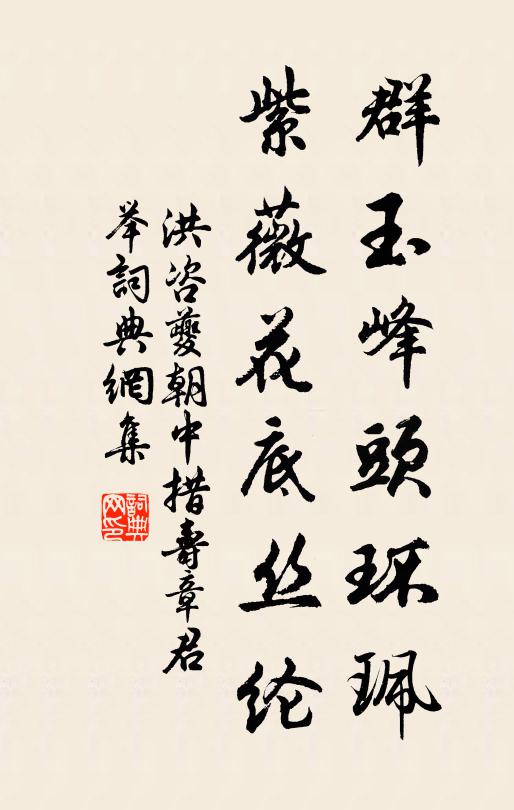 群玉峰頭环珮
紫薇花底丝纶
洪咨夔朝中措壽章君
举詞典網集
詞典网印